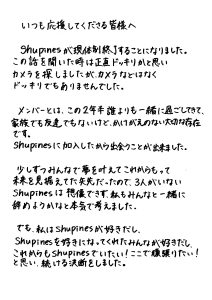 いつも応援してくださる皆様へ
Shupinesが現体制終了することになりました。
この話を聞いた時は正直ドッキリかと思い
カメラを探しましたが、カメラなどはなく
ドッキリでもありませんでした。
メンバーとは、この2年半誰よりも一緒に過ごしてきて、
家族でも友達でもないけど、かけがえのない大切な存在
です。
Shupinesに加入したから出会うことが出来ました。
少しずつみんなで夢を叶えてこれからもって
未来を見据えてた矢先だったので、3人がいない
Shupinesは想像できず、私もみんなと一緒に
辞めようかなと本気で考えました。
でも、私はShupinesが好きだし、
Shupinesを好きになってくれたみんなが好きだし、
これからもShupinesでいたい!ここで頑張りたい!
と思い、続ける決断をしました。